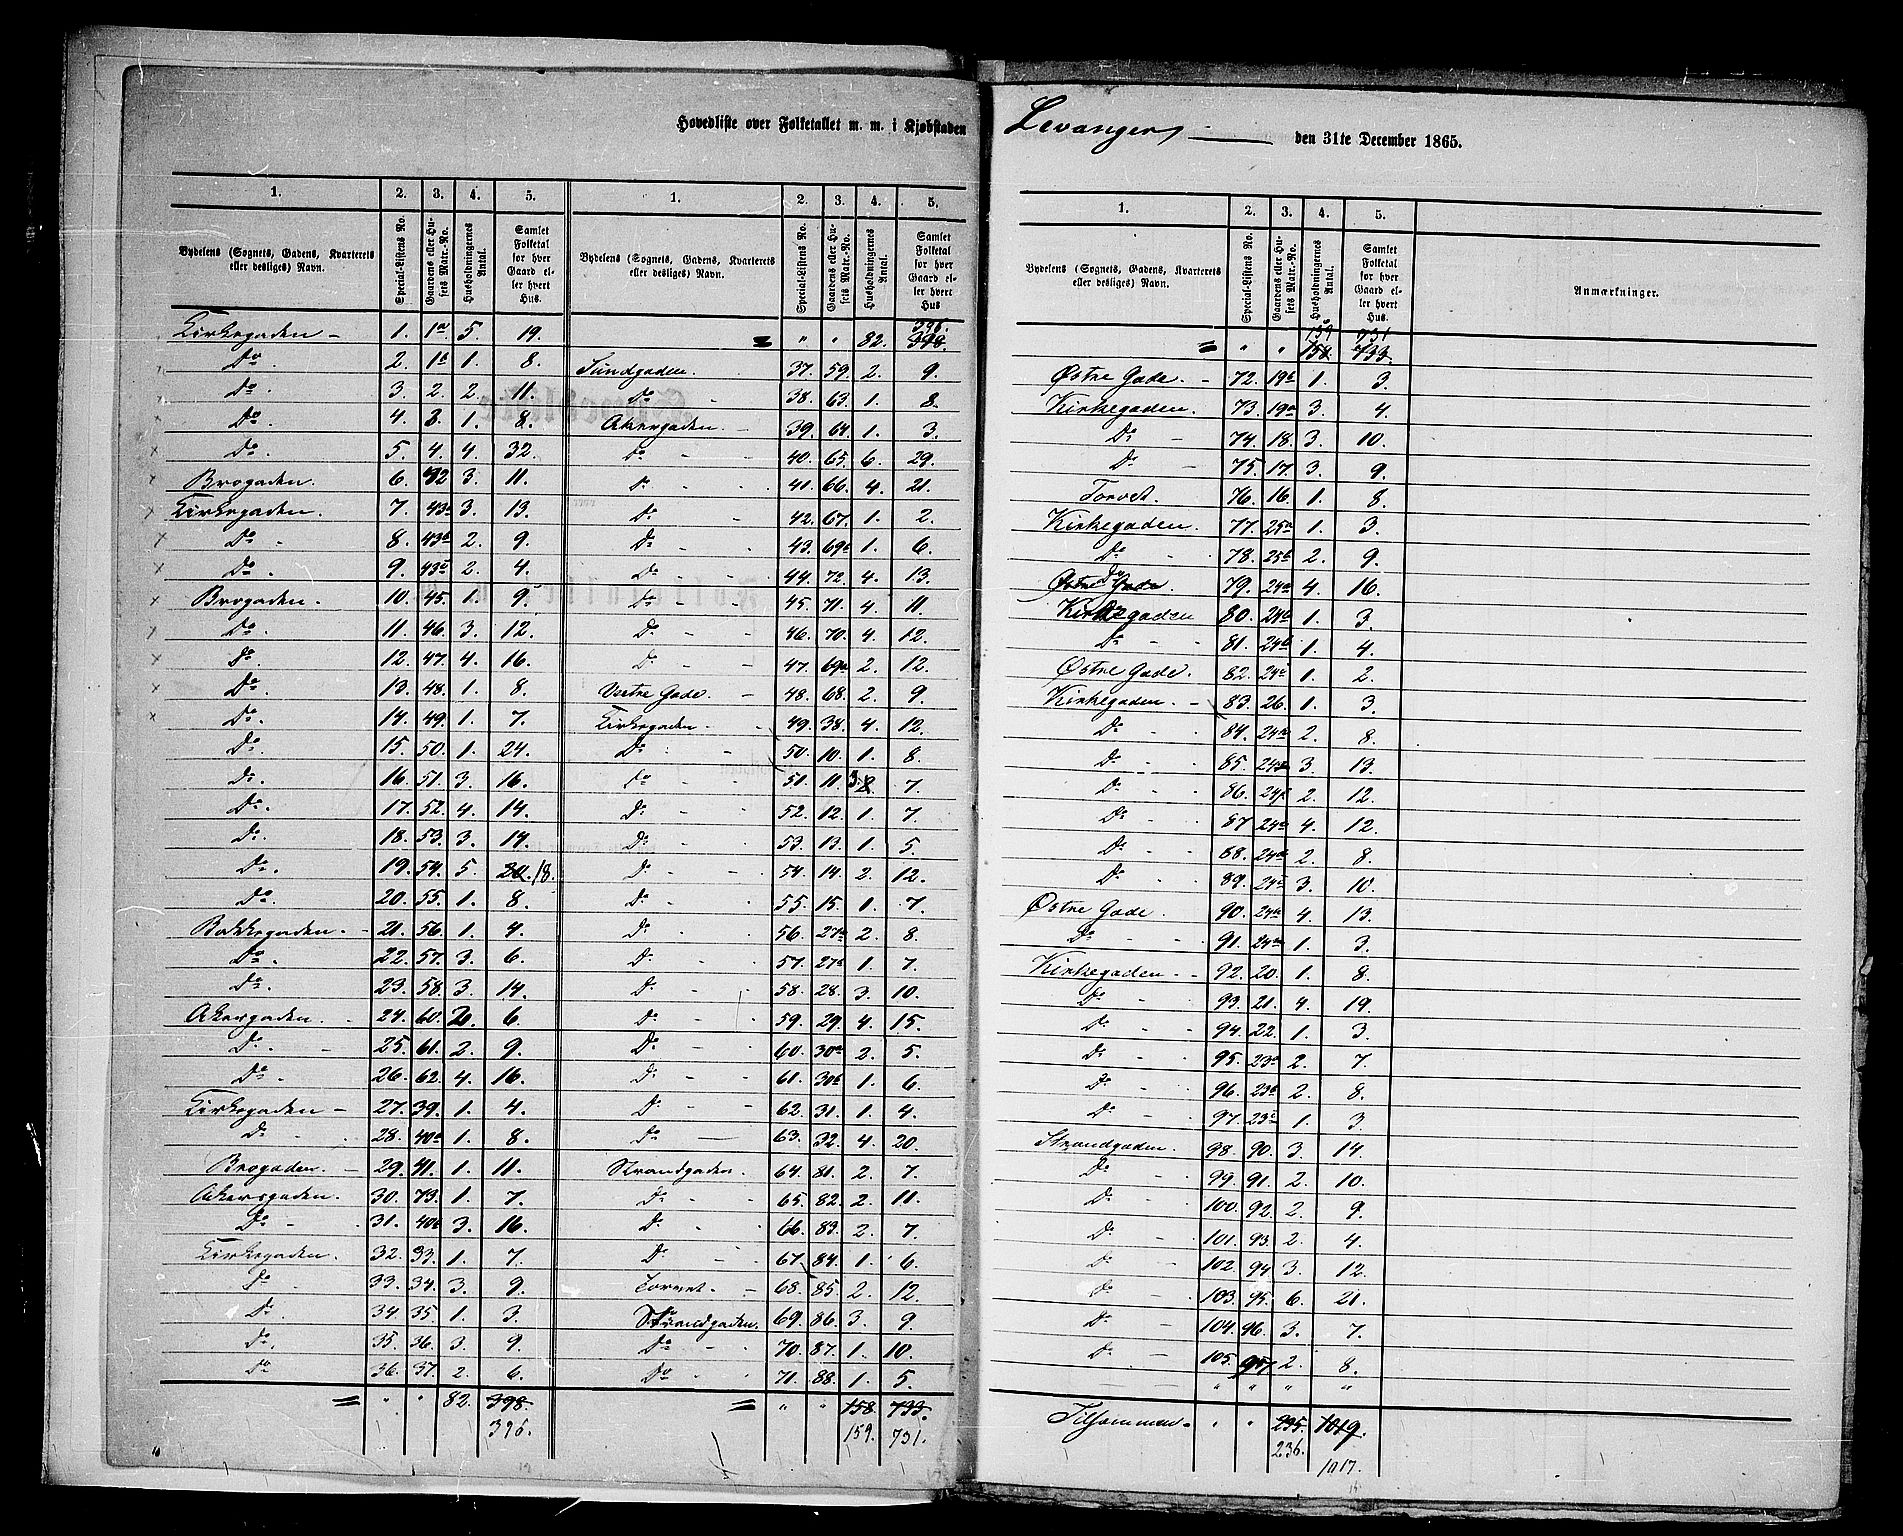 Hovedliste over Folketallet m. m. i Kjøbstaden Levanger, den 31te December 1865.
1. 2. 3. 4. 5. 1. 2. 3. 4. 5.
Bydelens (Sognets, Gadens, Kvarterets eller desliges) Navn. Special-Listens No. Gaardens eller Husets Matr.-No. Husholdningernes Antal. Samlet Folketal for hver Gaard eller hvert Hus.
Kirkegaden - 1. 1a 5. 19.
Do. 2. 1b 1. 8.
Do. 3. 2. 2. 11.
Do. 4. 3. 1. 8.
Do. 5. 4. 4. 32.
Brogaden. 6. 42 3. 11.
Kirkegaden. 7. 43a 3. 13.
Do. 8. 43b 2. 9.
Do. 9. 43c 2. 4.
Brogaden. 10. 45. 1. 9.
Do. 11. 46. 3. 12.
Do. 12. 47. 4. 16.
Do. 13. 48. 1. 8.
Do. 14. 49. 1. 7.
Do. 15. 50. 1. 24.
Do. 16. 51. 3. 16.
Do. 17. 52. 4. 14.
Do. 18. 53. 3. 14.
Do. 19. 54. 5. 20. 18.
Do. 20. 55. 1. 8.
Bakkegaden. - 21. 56. 1. 4.
Do. 22. 57. 3. 6.
Do. 23. 58. 3. 14.
Akergaden. - 24. 60. 2. 6.
Do. 25. 61. 2. 9.
Do. 26. 62. 4. 16.
Kirkegaden - 27. 39. 1. 4.
Do. 28. 40a 1. 8.
Brogaden. - 29. 41. 1. 11.
Akersgaden. 30. 73. 1. 7.
Do. - 31. 40b 3. 16.
Kirkegaden. 32. 33. 1. 7.
Do 33. 34. 3. 9.
Do. 34. 35. 1. 3.
Do. 35. 36. 3. 9.
Do 36. 37. 2. 6.
= " " 82. 398.
396.
Bydelens (Sognets, Gadens, Kvarterets eller desliges) Navn. Special-Listens No. Gaardens eller Husets Matr.-No. Husholdningernes Antal. Samlet Folketal for hver Gaard eller hvert Hus
396.
= " " 82. 398.
Sundgaden. 37. 59. 2. 9.
Do 38. 63. 1. 8.
Akergaden. - 39. 64. 1. 3.
Do - 40. 65. 6. 29.
Do - 41. 66. 4. 21.
Do. - 42. 67. 1. 2.
Do - 43. 69c 1. 6.
Do - 44. 72. 4. 13.
Do - 45. 71. 4. 11.
Do. - 46. 70. 4. 12.
Do. - 47. 69a 2. 12.
Vestre Gade. - 48. 68. 2. 9.
Kirkegaden - 49. 38. 4. 12.
Do. - 50. 10. 1. 8.
Do - 51. 11. 3. 7.
Do. - 52. 12. 1. 7.
Do. - 53. 13. 1. 5.
Do. - 54. 14. 2. 12.
Do. 55. 15. 1. 7.
Do. 56. 27a 2. 8.
Do. 57. 27b 1. 7.
Do. - 58. 28. 3. 10.
Do. - 59. 29. 4. 15.
Do - 60. 30a 2. 5.
Do. - 61. 30b 1. 6.
Do. - 62. 31. 1. 4.
Do — 63. 32. 4. 20.
Strandgaden. 64. 81. 2. 7.
Do. - 65. 82. 2. 11.
Do. - 66. 83. 2. 7.
Do. - 67. 84. 1. 6.
Torvet. - 68. 85. 2. 12.
Strandgaden. 69. 86. 3. 9.
Do - 70. 87. 1. 10.
Do - 71. 88. 1. 5.
= " " 158 733.
159. 731.
1. 2. 3. 4. 5.
Bydelens (Sognets, Gadens, Kvarterets eller desliges) Navn. Special-Listens No. Gaardens eller Husets Matr.-No. Husholdningernes Antal. Samlet Folketal for hver Gaard eller hvert Hus. Anmærkninger.
159 731
= " " 158. 733.
Østre Gade. - 72. 19b 1. 3.
Kirkegaden. 73. 19a 3. 4.
Do - 74. 18. 3. 10.
Do. - 75. 17. 3. 9.
Torvet. 76. 16. 1. 8.
Kirkegaden. 77. 25a 1. 3.
Do - 78. 25b 2. 9.
Østre Gade. Do 79. 24a 4. 16.
Kirkegaden 80. 1. 3.
Do - 81. 24b 1. 4.
Østre Gade. 82. 1. 2.
Kirkegaden. - 83. 26. 1. 3.
Do - 84. 2. 8.
Do. - 85. 3. 13.
Do. - 86. 2. 12.
Do. - 87 4. 12.
Do. - 88. 2. 8.
Do. - 89. 3. 10.
Østre Gade. 90. 4. 13.
Do - 91. 1. 3.
Kirkegaden. - 92. 20. 1. 8.
Do - 93. 21. 4. 19.
Do. - 94. 22. 1. 3.
Do. - 95. 23a 2. 7.
Do. - 96. 23b 2. 8.
Do. - 97. 23c 1. 3.
Strandgaden. 98. 90. 3. 14.
Do. - 99. 91. 2. 10.
Do. - 100. 92. 2. 9.
Do. - 101. 93. 2. 4.
Do. - 102. 94 3. 12.
Do. - 103. 95. 6. 21.
Do. - 104. 96. 3. 7.
Do. - 105. 97. 2. 8.
" " " "
Tilsammen. " " 235. 1019.
236.
1017.